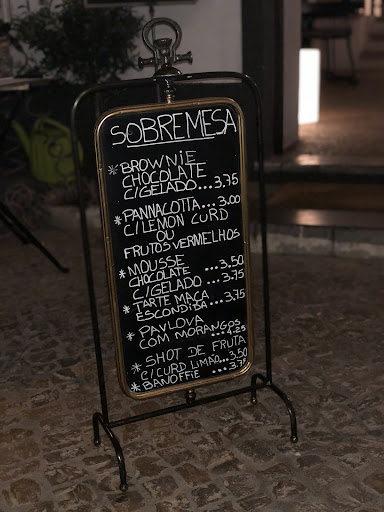 SOBREMESA
* BROWNIE
CHOCOLATE
C/GELADO...3,75
* PANNACOTTA...3.00
C/LEMON CURD
OU
FRUTOS VERMELHOS
* MOUSSE ...3,50
CHOCOLATE
C/GELADO ...3,75
* TARTE MAÇA ...3,75
ESCONDIDA
* PAVLOVA
COM MORANGOS
...4,25
* SHOT DE FRUTA
C/CURD LIMÃO...3,50
* BANOFFIE ...3,75